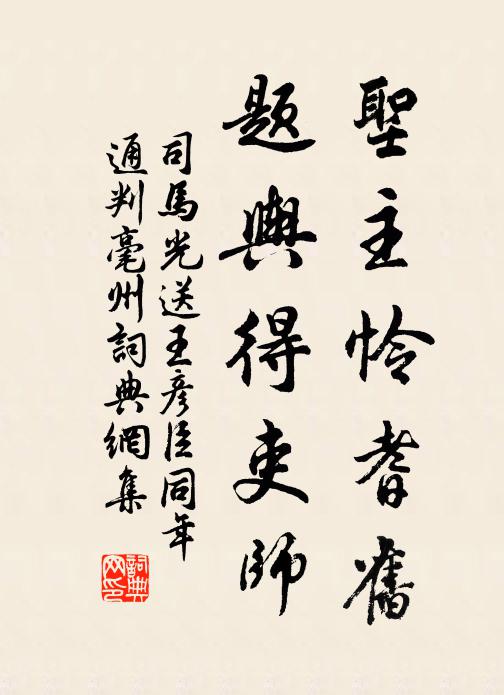 聖主怜耆舊
題輿得吏師
司馬光送王彦臣同年
通判亳州詞典網集
詞典网印